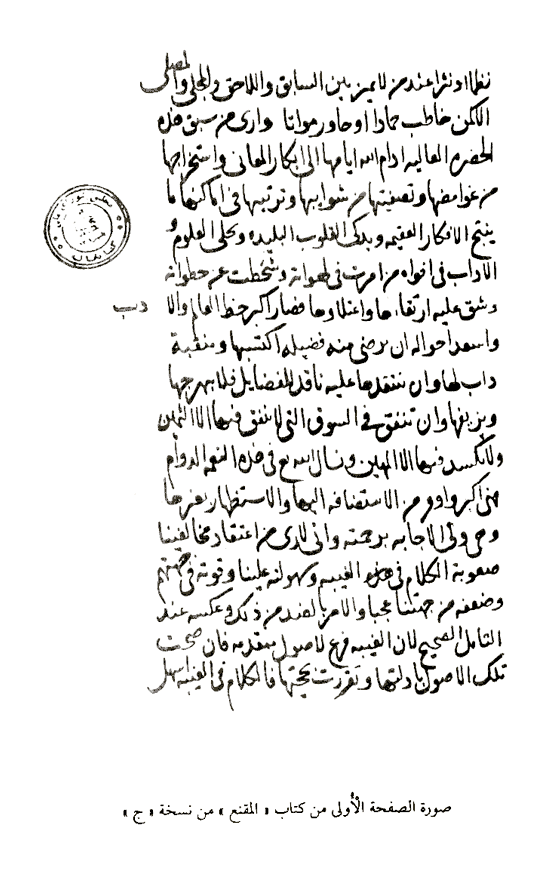 نظما او نثرا عند من لا يميز بين السابق واللاحق والمجلي والمصلي
لكمن خاطب جمادا او حاور مواتا وارى من سبق هذه
الحضرة العاليه ادام الله ايامها الى ابكار المعاني واستخراجها
من غوامضها وتصفيتها من شوايبها وترتيبها في اماكنها ما
ينتج الافكار العقيمه ويذكى القلوب البليده ويحلى العلوم و
الاداب في افواه من امرت في لهواته وشحطت عن خطواته
وشق عليه ارتقاءها واعتلاوها فصار اكبر حظ العالم والا
دب
واسعد احواله ان يرضى منه فضيله اكتسبها ومنقبة
داب لها وان تنتقدها عليه ناقد الفضايل فلا يبهرجها
ويزيفها وان تنفق في السوق التي لا ينفق فيها الا الثمين
ولا يكسد فيها الا المهين ونسال الله تع في هذه النعمه الدوام
فهي اكبر واوفر من الاستضافه اليها والاستظهار بغيرها
وهو ولى الاجابه برحمته وانى لارى من اعتقاد مخالفينا
صعوبة الكلام في هذه الغيبه وسهولته علينا وقوته في جهتهم
وضعفه من جهتنا عجبا والامر بالضد من ذلك وعكسه عند
التامل الصحيح لان الغيبه فرع لاصول متقدمه فان صحت
تلك الاصول بادلتها وتقررت بحجتها فالكلام في الغيبه اسهل
صورة الصفحة الأُولى من كتاب « المقنع » من نسخة « ج »